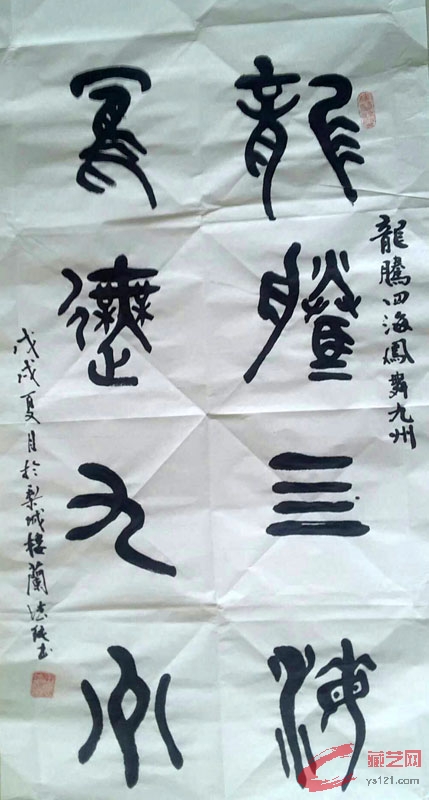 龍騰四海
龍騰四海鳳舞九州
鳳舞九州
戊戌夏月於梨城樓蘭
藏艺网
ys121.com